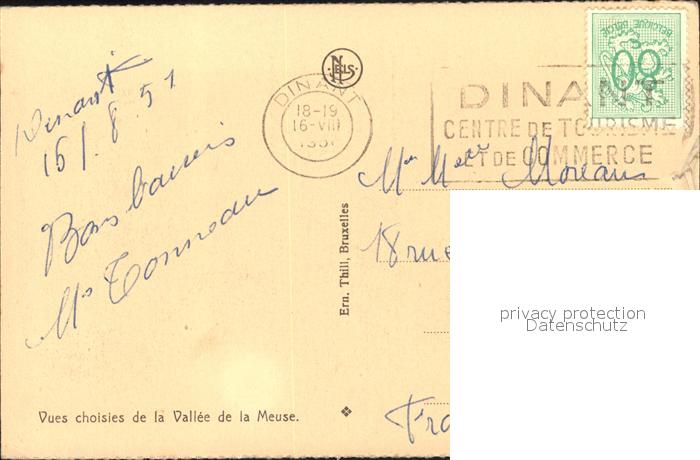 Dinant
15/.8.51
Bons baisers
Mo Tonneau
Vues choisies de la Vallée de la Meuse.
NELS
DINANT
18-19
16-VIII
1951
DINANT
CENTRE DE TOURISME
ET DE COMMERCE
BELGIQUE BELGIE
60
Ern. Thill, Bruxelles
Mr Mme Moreau
18 rue
Fra
privacy protection
Datenschutz